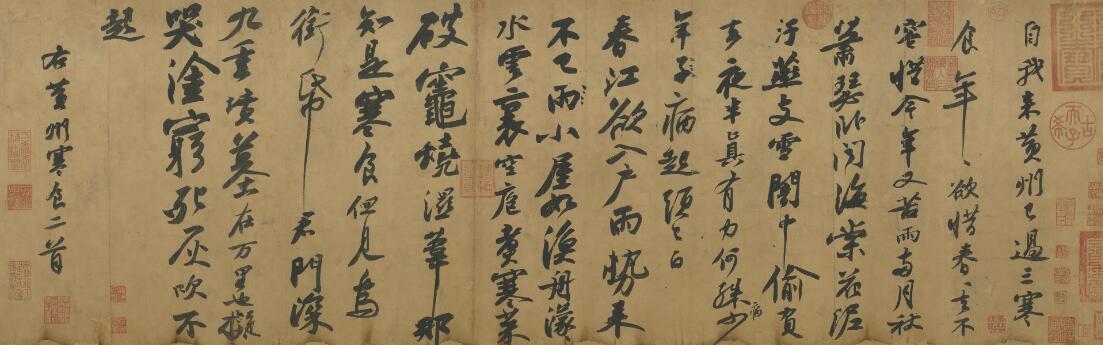 古希天子
自我来黄州已過三寒
食年〻欲惜春〻去不
容惜今年又苦雨两月秋
蕭瑟卧聞海棠花泥
汙燕支雪闇中偷負
去夜半真有力何殊病少
年子病起頭已白
春江欲入户雨勢来
不已雨小屋如漁舟濛〻
水雲裏空庖煑寒菜
破竈燒溼葦那
知是寒食但見烏
銜帋君門深
九重墳墓在万里也擬
哭塗窮死灰吹不
起
右黄州寒食二首